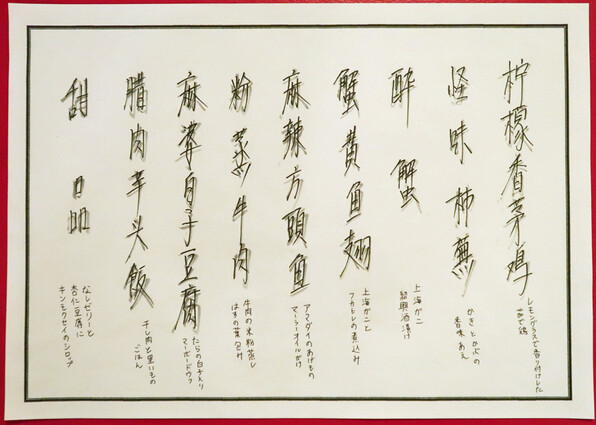 柠檬香茅鸡
レモングラスで香り付けした
茹で鶏
怪味柿蕪
かきとかぶの
香味あえ
酔蟹
上海ガニ
紹興酒漬け
蟹黄魚翅
上海ガニと
フカヒレの煮込み
麻辣方頭魚
アマダイのあげもの
マーラーオイルがけ
粉蒸牛肉
牛肉の米粉蒸し
はすの葉包み
麻婆白子豆腐
たらの白子入り
マーボードウフ
腊肉芋头飯
干し肉と里いもの
ごはん
甜品
なしゼリーと
杏仁豆腐に
キンモクセイのシロップ